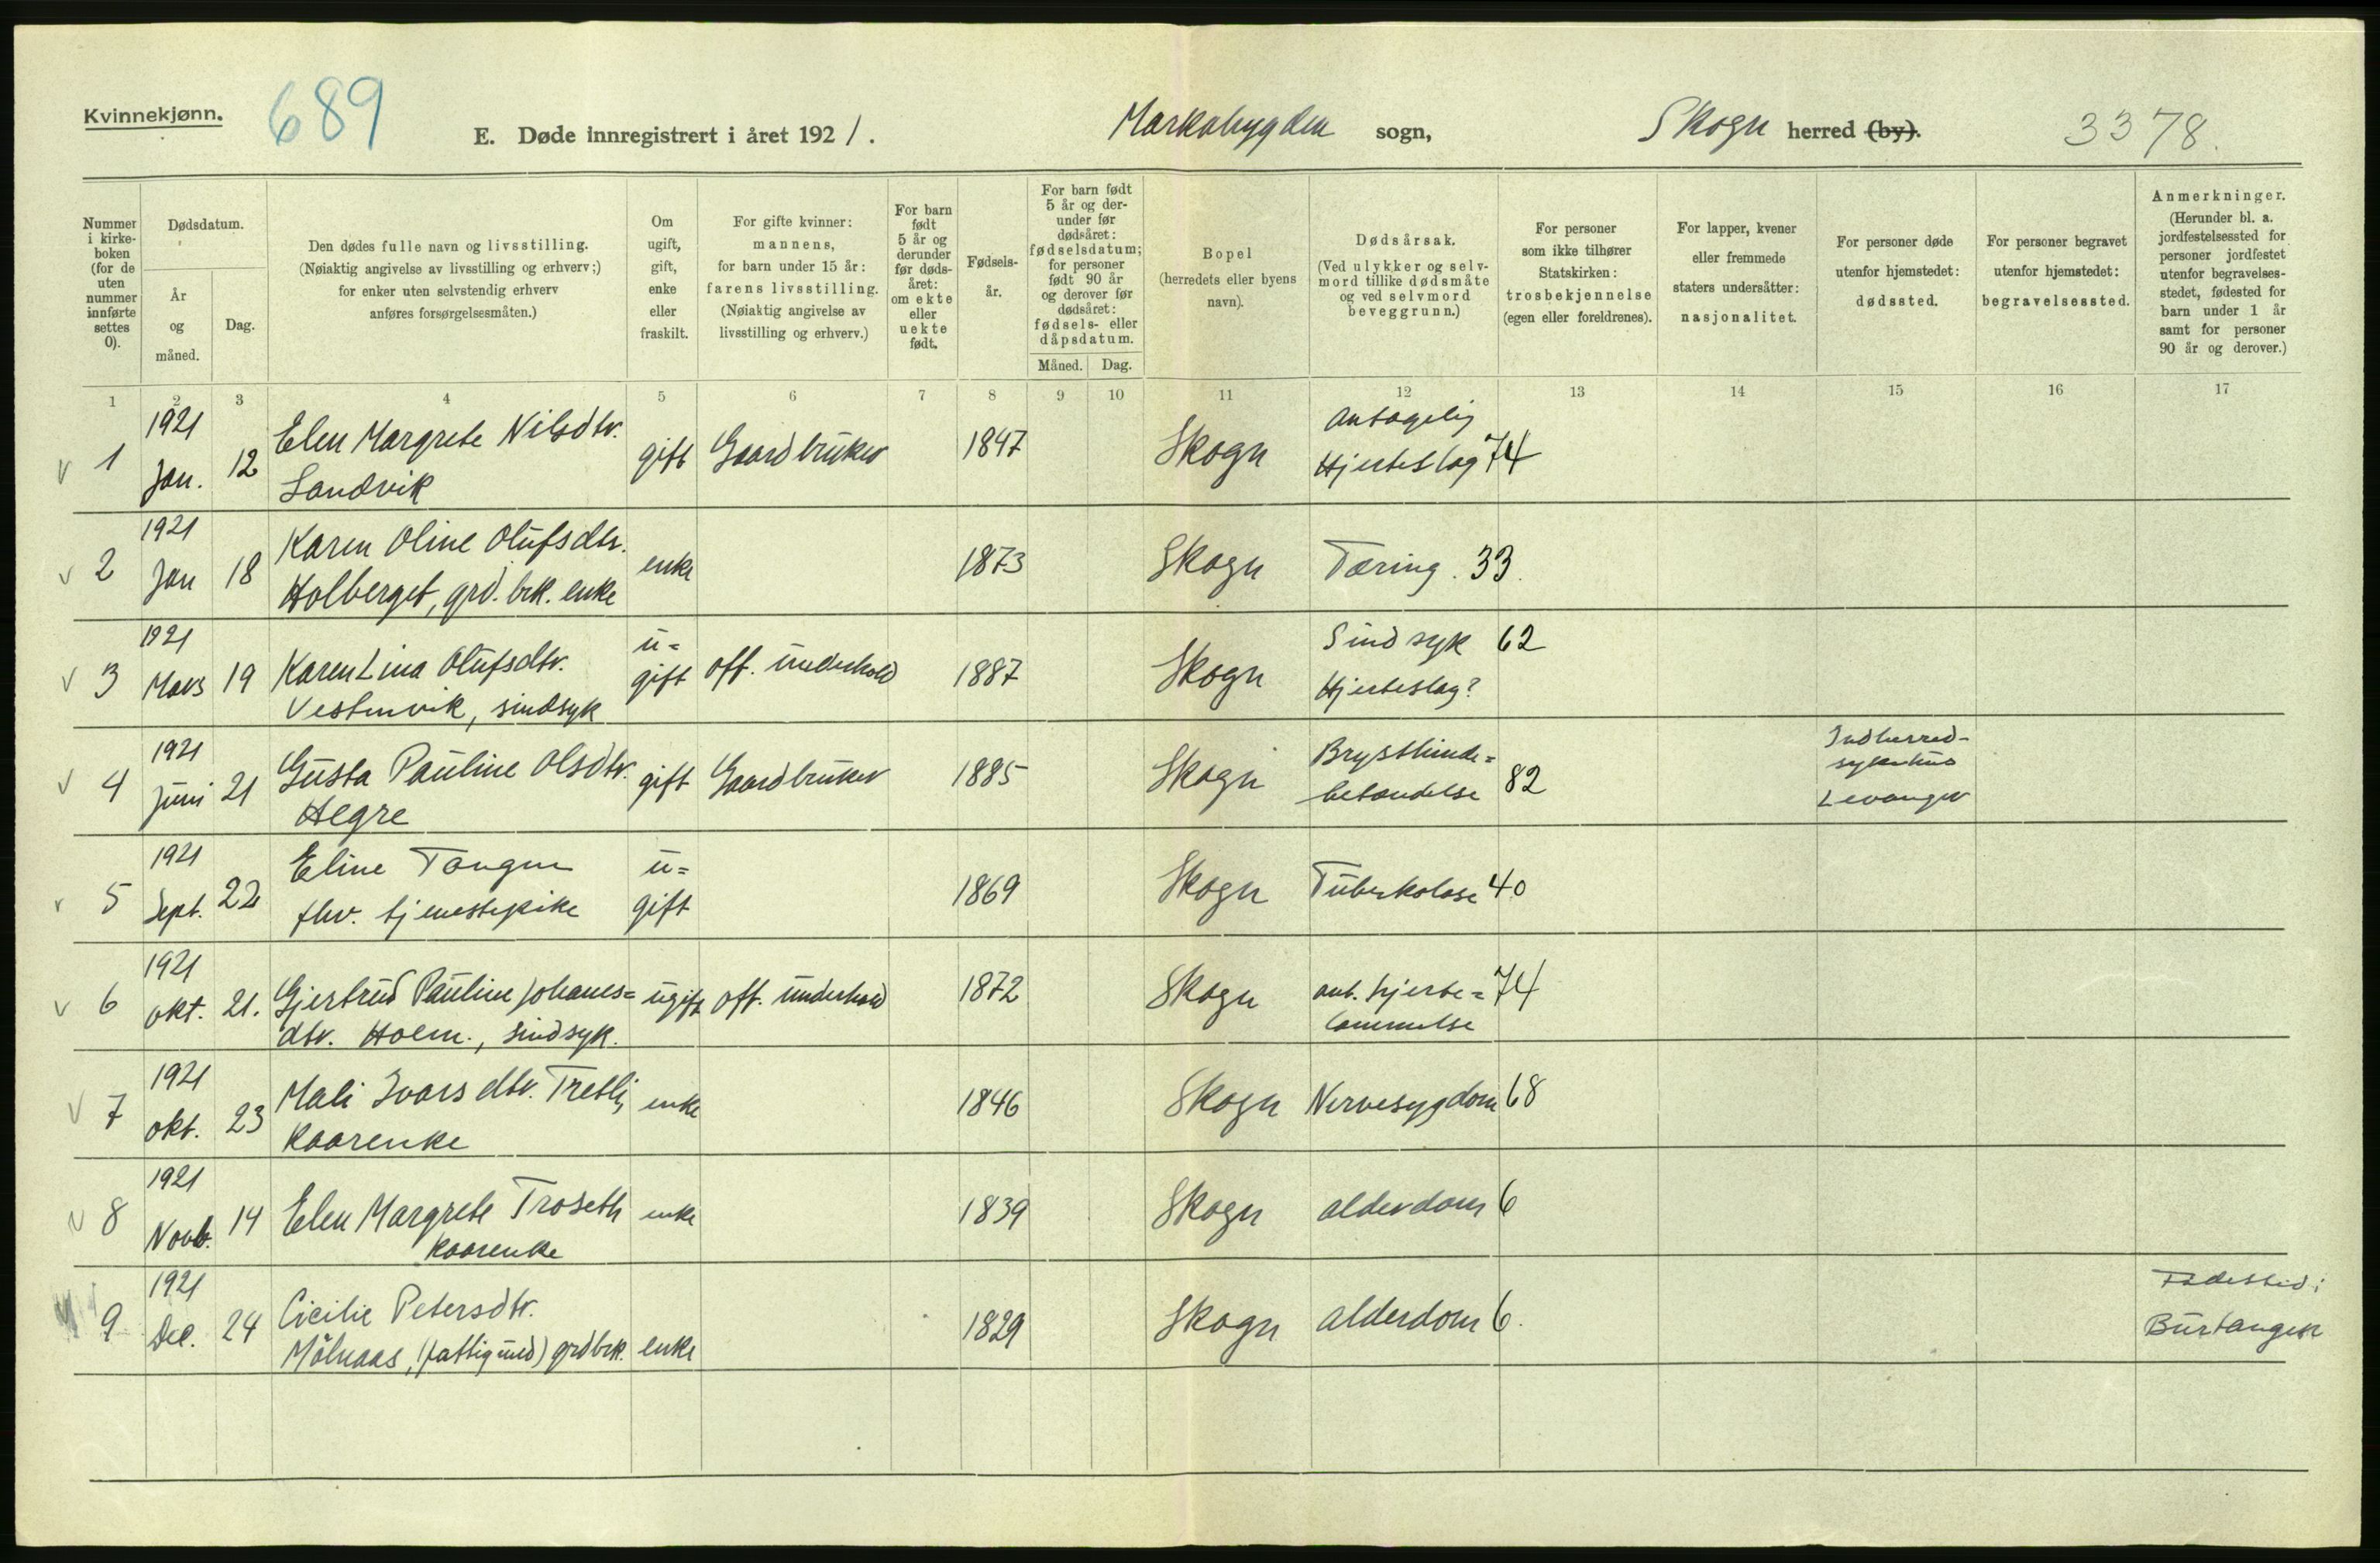 Kvinnekjønn.
689
E. Døde innregistrert i året 1921.
Markabygden sogn,
Skogn herred (by).
3378.
Nummer i kirke- boken (for de uten nummer innførte settes 0).
Dødsdatum.
År og måned.
Dag.
Den dødes fulle navn og livsstilling.
(Nøiaktig angivelse av livsstilling og erhverv;)
for enker uten selvstendig erhverv
anføres forsørgelsesmåten.)
Om ugift, gift, enke eller fraskilt.
For gifte kvinner:
mannens,
for barn under 15 år:
farens livsstilling.
(Nøiaktig angivelse av
livsstilling og erhverv.)
For barn født 5 år og derunder før døds- året: om ekte eller uekte født.
Fødsels- år.
For barn født 5 år og der- under før dødsåret: fødselsdatum; for personer født 90 år og derover før dødsåret: fødsels- eller dåpsdatum.
Måned.
Dag.
Bopel
(herredets eller byens
navn).
Dødsårsak.
(Ved ulykker og selv-
mord tillike dødsmåte
og ved selvmord
beveggrunn.)
For personer
som ikke tilhører
Statskirken:
trosbekjennelse
(egen eller foreldrenes).
For lapper, kvener
eller fremmede
staters undersåtter:
nasjonalitet.
For personer døde
utenfor hjemstedet:
dødssted.
For personer begravet
utenfor hjemstedet:
begravelsessted.
Anmerkninger.
(Herunder bl. a.
jordfestelsessted for
personer jordfestet
utenfor begravelses-
stedet, fødested for
barn under 1 år
samt for personer
90 år og derover.)
1 2 3 4 5 6 7 8 9 10 11 12 13 14 15 16 17
v 1 1921 Jan. 12 Elen Margrete Nilsdtr. Sandvik gift Gaardbruker 1847 Skogn Antagelig Hjerteslag 74
v 2 1921 Jan 18 Karen Oline Olufsdtr. Holberget, grd. brk. enke enke 1873 Skogn Tæring. 33.
v 3 1921 Mars 19 Karen Lina Olufsdtr. Vestenvik, sindsyk u= gift off. underhold 1887 Skogn Sindsyk 62 Hjerteslag?
v 4 1921 Juni 21 Gusta Pauline Olsdtr. Hegre gift Gaardbruker 1885 Skogn Brysthinde= betændelse 82 Indherred- sykehus Levanger
v 5 1921 Sept. 22 Eline Tangen fhv. tjenestepike u= gift 1869 Skogn Tuberkolose 40
v 6 1921 okt. 21. Gjertrud Pauline Johanes= dtr. Holm., sindsyk. ugift off. underhold 1872 Skogn ant. hjerte= lammelse 74
v 7 1921 okt. 23 Mali Ivarsdtr. Tretli, kaarenke enke 1846 Skogn Nervesygdom 68
v 8 1921 Novb. 14 Elen Margrete Troseth kaarenke enke 1839 Skogn alderdom 6
9 1921 Des. 24 Cicilie Petersdtr. Målnaas, (fattigund) grdbrk. enke 1829 Skogn alderdom 6. Fødested: Burtangen